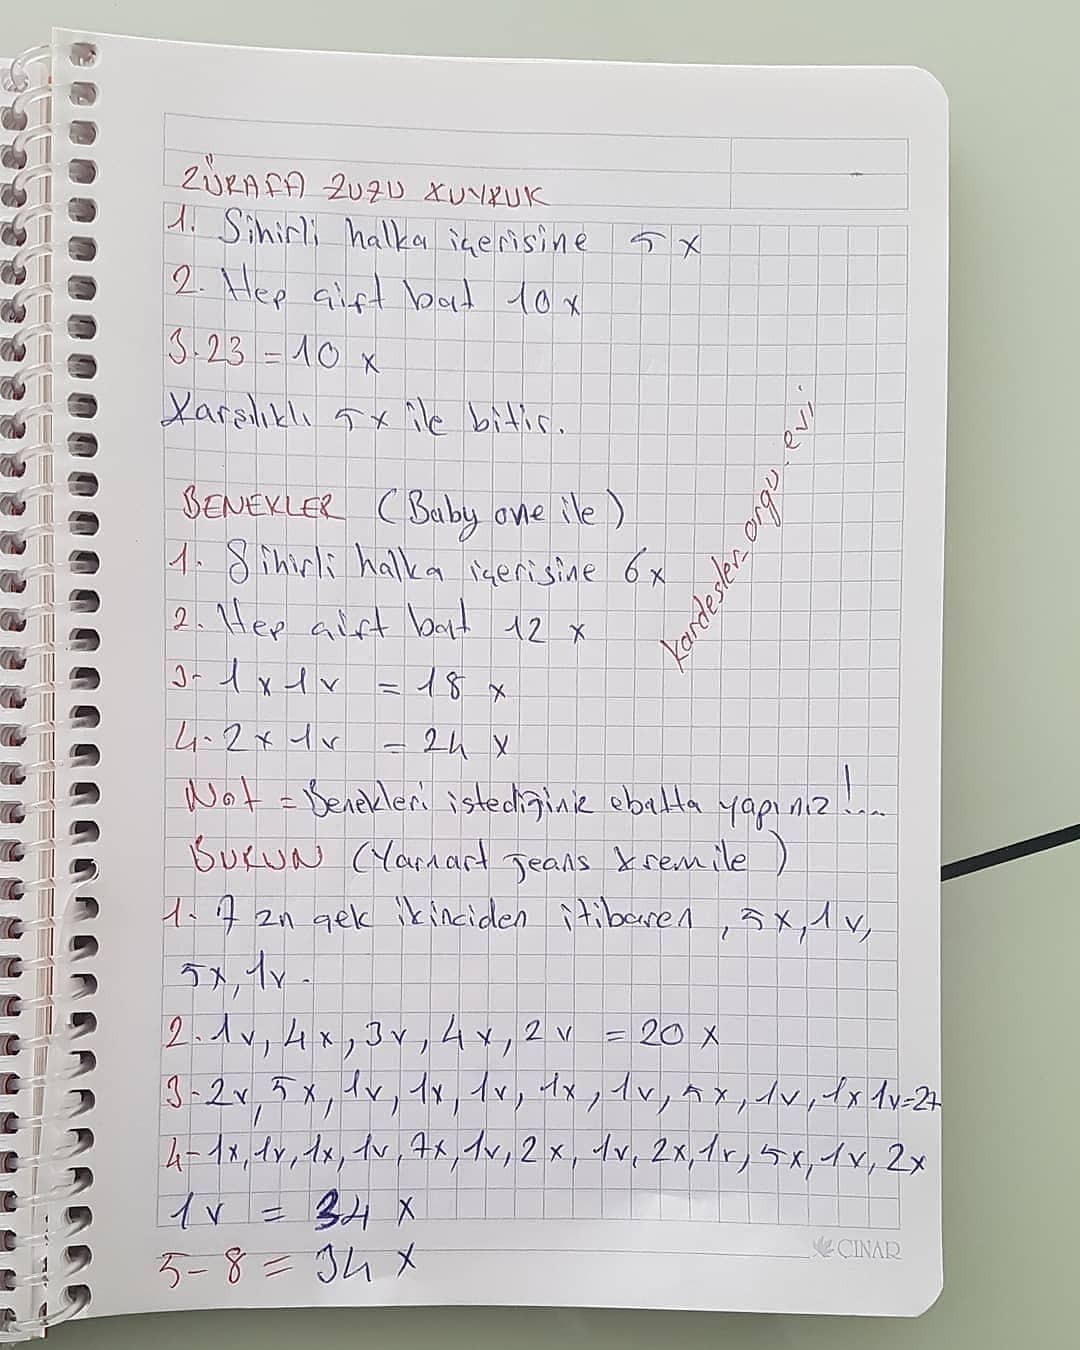 ZÜRAFA ZUZU KUYRUK
1. Sihirli halka içerisine 5 x
2. Hep çift bat 10 x
3-23 = 10 x
Karşılıklı 5 x ile bitir.
BENEKLER (Baby one ile)
1. Sihirli halka içerisine 6 x
2. Hep çift bat 12 x
3- 1 x 1 v = 18 x
4- 2 x 1 v = 24 x
Not = Benekleri istediğiniz ebatta yapınız!...
BURUN (Yarnart jeans krem ile)
1- 7 zn çek ikinciden itibaren, 5x, 1v,
5x, 1v.
2. 1v, 4x, 3v, 4x, 2v = 20 x
3- 2v, 5x, 1v, 1x, 1v, 1x, 1v, 5x, 1v, 1x 1v=27
4- 1x, 1v, 1x, 1v, 7x, 1v, 2x, 1v, 2x, 1v, 5x, 1v, 2x
1v = 34 x
5-8 = 34 x
kardesler_orgu.evi.
ÇINAR